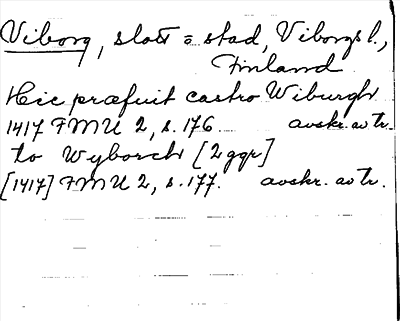 Viborg, slott = stad, Viborgs l.,
Finland
Hic præfuit castro Wiburgh
1417 FMU 2, s. 176 avskr. av tr.
to Wyborch [2 ggr]
[1417] FMU 2, s. 177. avskr. av tr.